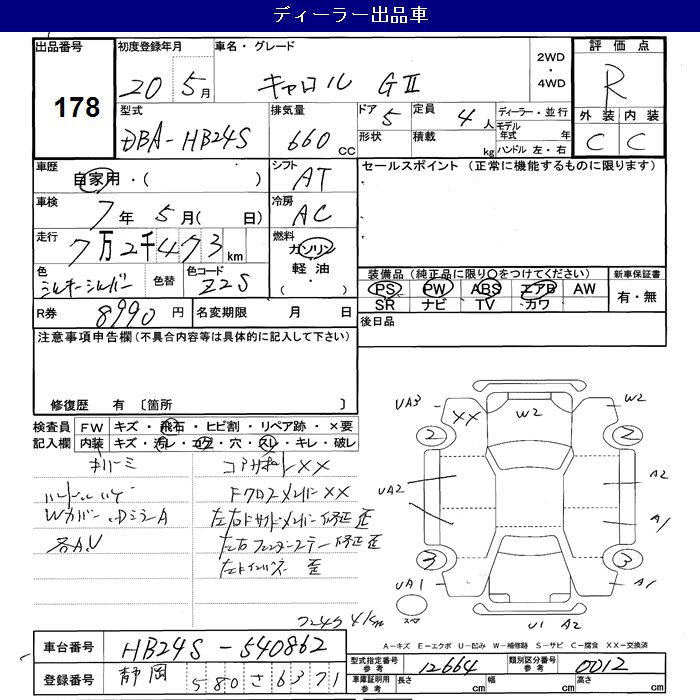 ディーラー出品車
出品番号 178
初度登録年月 20年 5月
車名・グレード キャロル GⅡ
2WD・4WD
評価点 R
外装 C 内装 C
型式 DBA-HB24S
排気量 660cc
ドア 5 定員 4人
形状 積載 kg
ディーラー・並行
モデル年式 年
ハンドル 左・右
車歴 自家用・( )
シフト AT
セールスポイント (正常に機能するものに限ります)
車検 7年 5月( 日)
冷房 AC
走行 7万2千473km
燃料 ガソリン
軽油
( ・ )
色 シルキーシルバー 色替 色コード Z2S
装備品(純正品に限り○をつけてください) 新車保証書
PS PW ABS エアB AW 有・無
SR ナビ TV カワ
R券 8990円 名変期限 月 日
後日品
注意事項申告欄(不具合内容等は具体的に記入して下さい)
修復歴 有 〔箇所 〕
検査員記入欄 FW キズ・飛石・ヒビ割・リペア跡・×要
内装 キズ・汚レ・コゲ・穴・スレ・キレ・破レ
コアサポートXX
WカバーDミラーA
各A,U
UA3 XX W2 W2
2 2
UA2 A2
A1
3 3
UA1 A1
スペア
U1 A2
A-キズ E-エクボ U-凹み W-補修跡 S-サビ C-腐食 XX-交換済
車台番号 HB24S-540862
登録番号 静岡 580 さ 6371
型式指定番号 参考 12664 類別区分番号 参考 0012
車庫証明用 参考 長さ cm 幅 cm 高さ cm